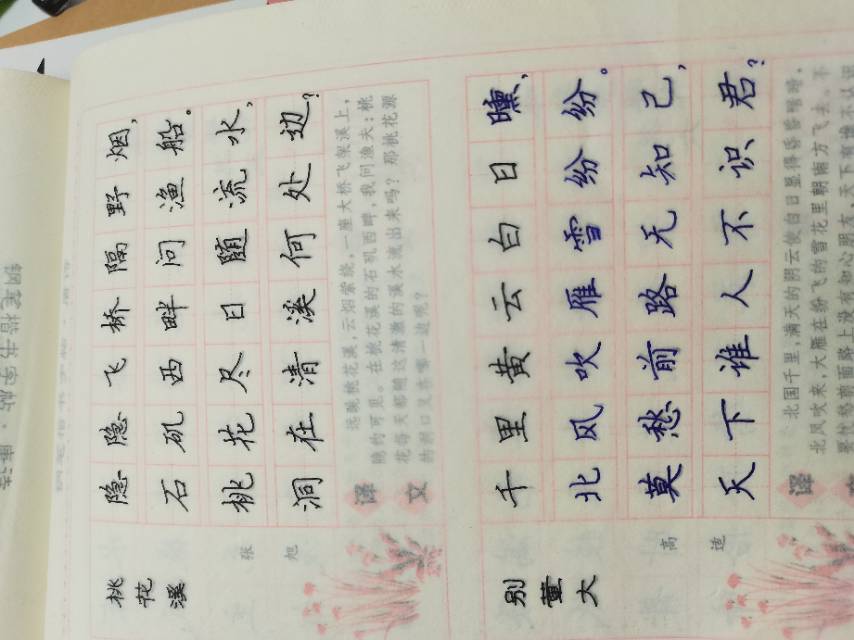 钢笔楷书字帖·唐诗
桃花溪
张旭
隐隐飞桥隔野烟,
石矶西畔问渔船。
桃花尽日随流水,
洞在清溪何处边?
译文
远眺桃花溪,云烟萦绕,一座大桥飞架溪上,
隐约可见。在桃花溪的石矶西畔,我问渔夫:桃
花每天都随这清澈的溪水流出来吗?那桃花源
的洞口又在哪一边呢?
别董大
高适
千里黄云白日曛,
北风吹雁雪纷纷。
莫愁前路无知己,
天下谁人不识君?
译
北国千里,满天的阴云使白日显得昏昏暗暗,
北风吹来,大雁在纷飞的雪花里朝南方飞去。不
要忧愁前面路上没有知心朋友,天下有谁不认识